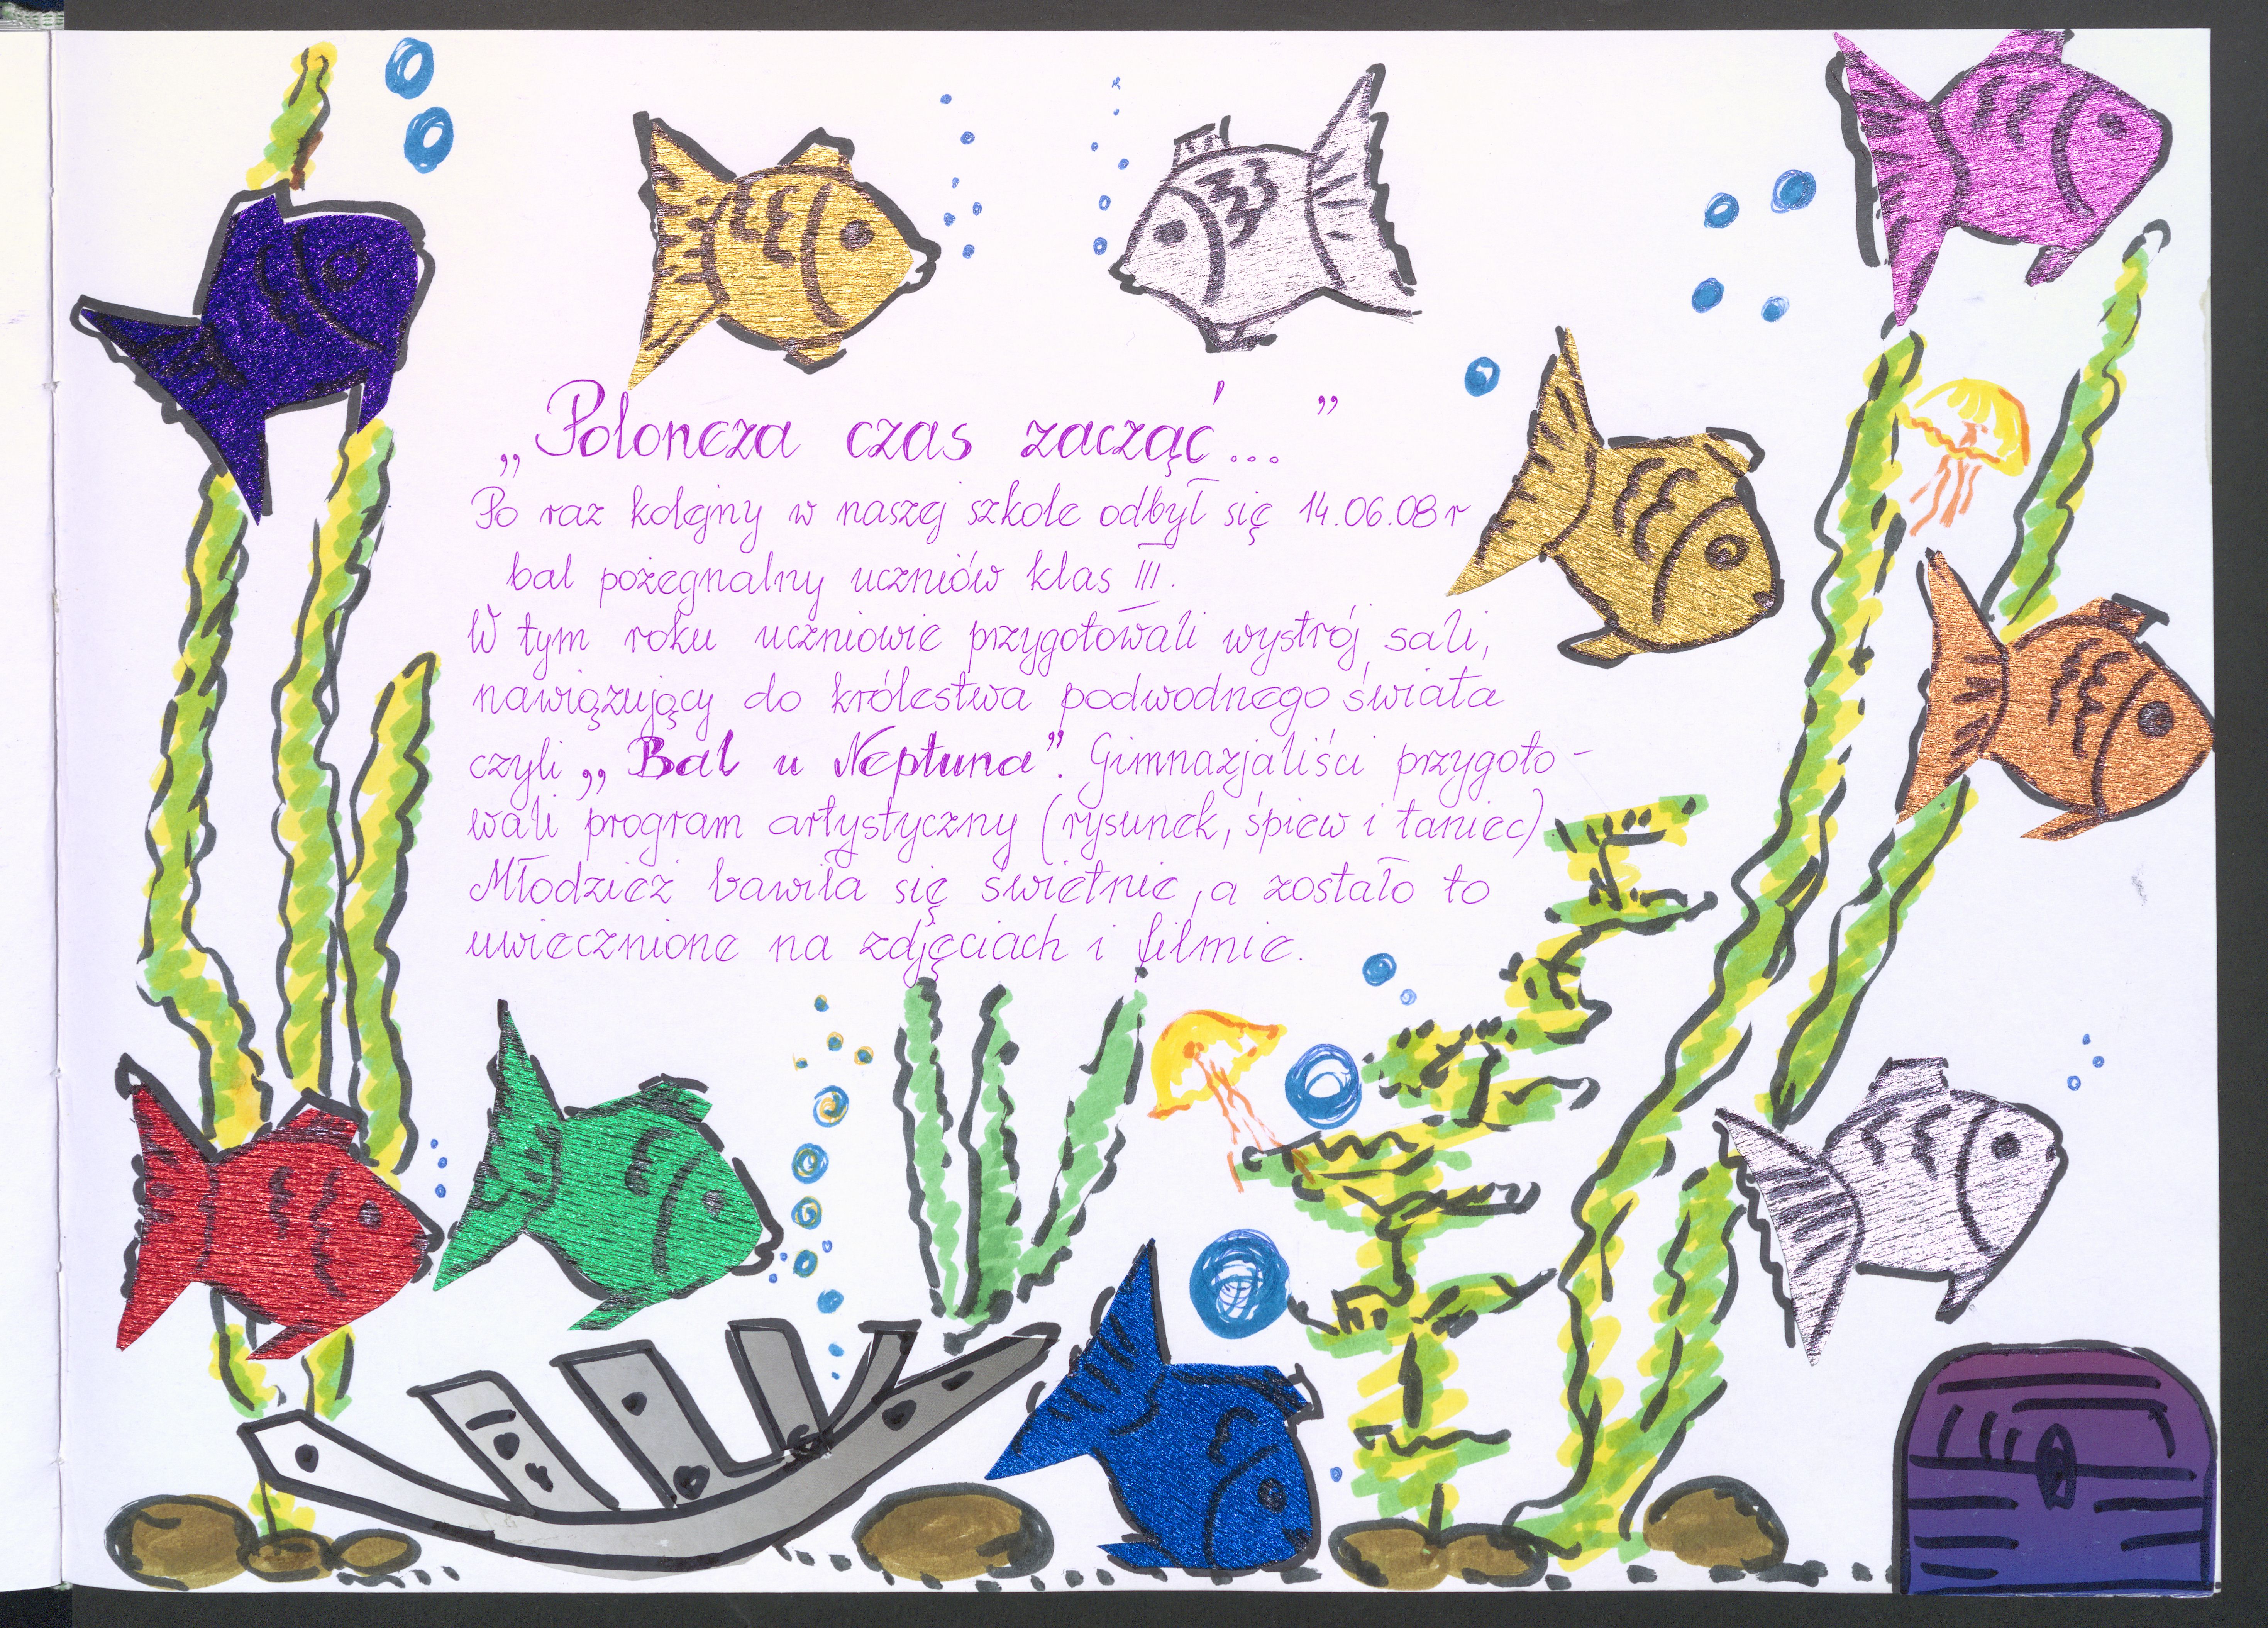 „Poloneza czas zacząć...”
Po raz kolejny w naszej szkole odbył się 14.06.08 r
bal pożegnalny uczniów klas III.
W tym roku uczniowie przygotowali wystrój sali,
nawiązujący do królestwa podwodnego świata
czyli „Bal u Neptuna”. Gimnazjaliści przygoto-
wali program artystyczny (rysunek, śpiew i taniec).
Młodzież bawiła się świetnie, a zostało to
uwiecznione na zdjęciach i filmie.